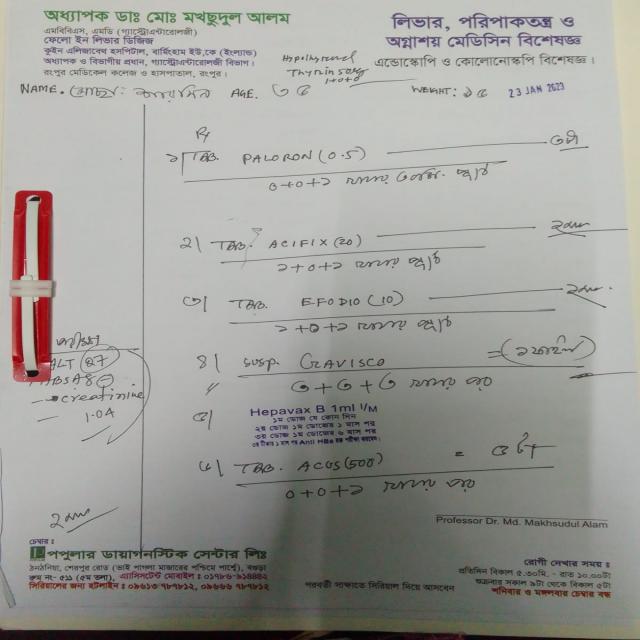 অধ্যাপক ডাঃ মোঃ মখছুদুল আলম
এমবিবিএস, এমডি (গ্যাস্ট্রোএন্টারোলজী)
ফেলো ইন লিভার ডিজিজ
কুইন এলিজাবেথ হসপিটাল, বার্মিংহাম ইউ,কে (ইংল্যান্ড)
অধ্যাপক ও বিভাগীয় প্রধান, গ্যাস্ট্রোএন্টারোলজী বিভাগ।
রংপুর মেডিকেল কলেজ ও হাসপাতাল, রংপুর।
লিভার, পরিপাকতন্ত্র ও
অগ্নাশয় মেডিসিন বিশেষজ্ঞ
এন্ডোস্কোপি ও কোলোনোস্কপি বিশেষজ্ঞ।
Thyrin 50mg
1+0+0
NAME. মোছাঃ AGE. ৩৫ WEIGHT: ৯৫ 23 JAN 2023
Rx
১| TAB. PALORON (0.5)
০+০+১ খাবার
২| TAB. ACIFIX (20)
১+০+১ খাবার
৩| TAB. EFODIO (10)
১+০+১ খাবার
৪| SUSP. GAVISCO
৩+৩+৩ খাবার পর
৫| Hepavax B 1ml I/M
১ম ডোজ যে কোন দিন
২য় ডোজ ১ম ডোজের ১ মাস পর
৩য় ডোজ ১ম ডোজের ৬ মাস পর
৬| TAB. ACUS (500) =
০+০+১ খাবার পর
ALT 27
HBSAg
creatinine
1.04
Professor Dr. Md. Makhsudul Alam
চেম্বার :
পপুলার ডায়াগনস্টিক সেন্টার লিঃ
ঠনঠনিয়া, শেরপুর রোড (ভাই পাগলা মাজারের পশ্চিম পার্শ্বে), বগুড়া
রুম নং- ৫১১ (৫ম তলা), এ্যাসিসটেন্ট মোবাইল : ০১৭৮৬-৯১৪৪৪২
সিরিয়ালের জন্য হটলাইন : ০৯৬১৩-৭৮৭৮১২, ০৯৬৬৬ ৭৮৭৮১২
পরবর্তী সাক্ষাতে সিরিয়াল দিয়ে আসবেন
রোগী দেখার সময় :
প্রতিদিন বিকাল ৫.৩০মি. - রাত ১০.০০টা
শুক্রবার সকাল ৯টা থেকে বিকাল ৫টা
শনিবার ও মঙ্গলবার চেম্বার বন্ধ